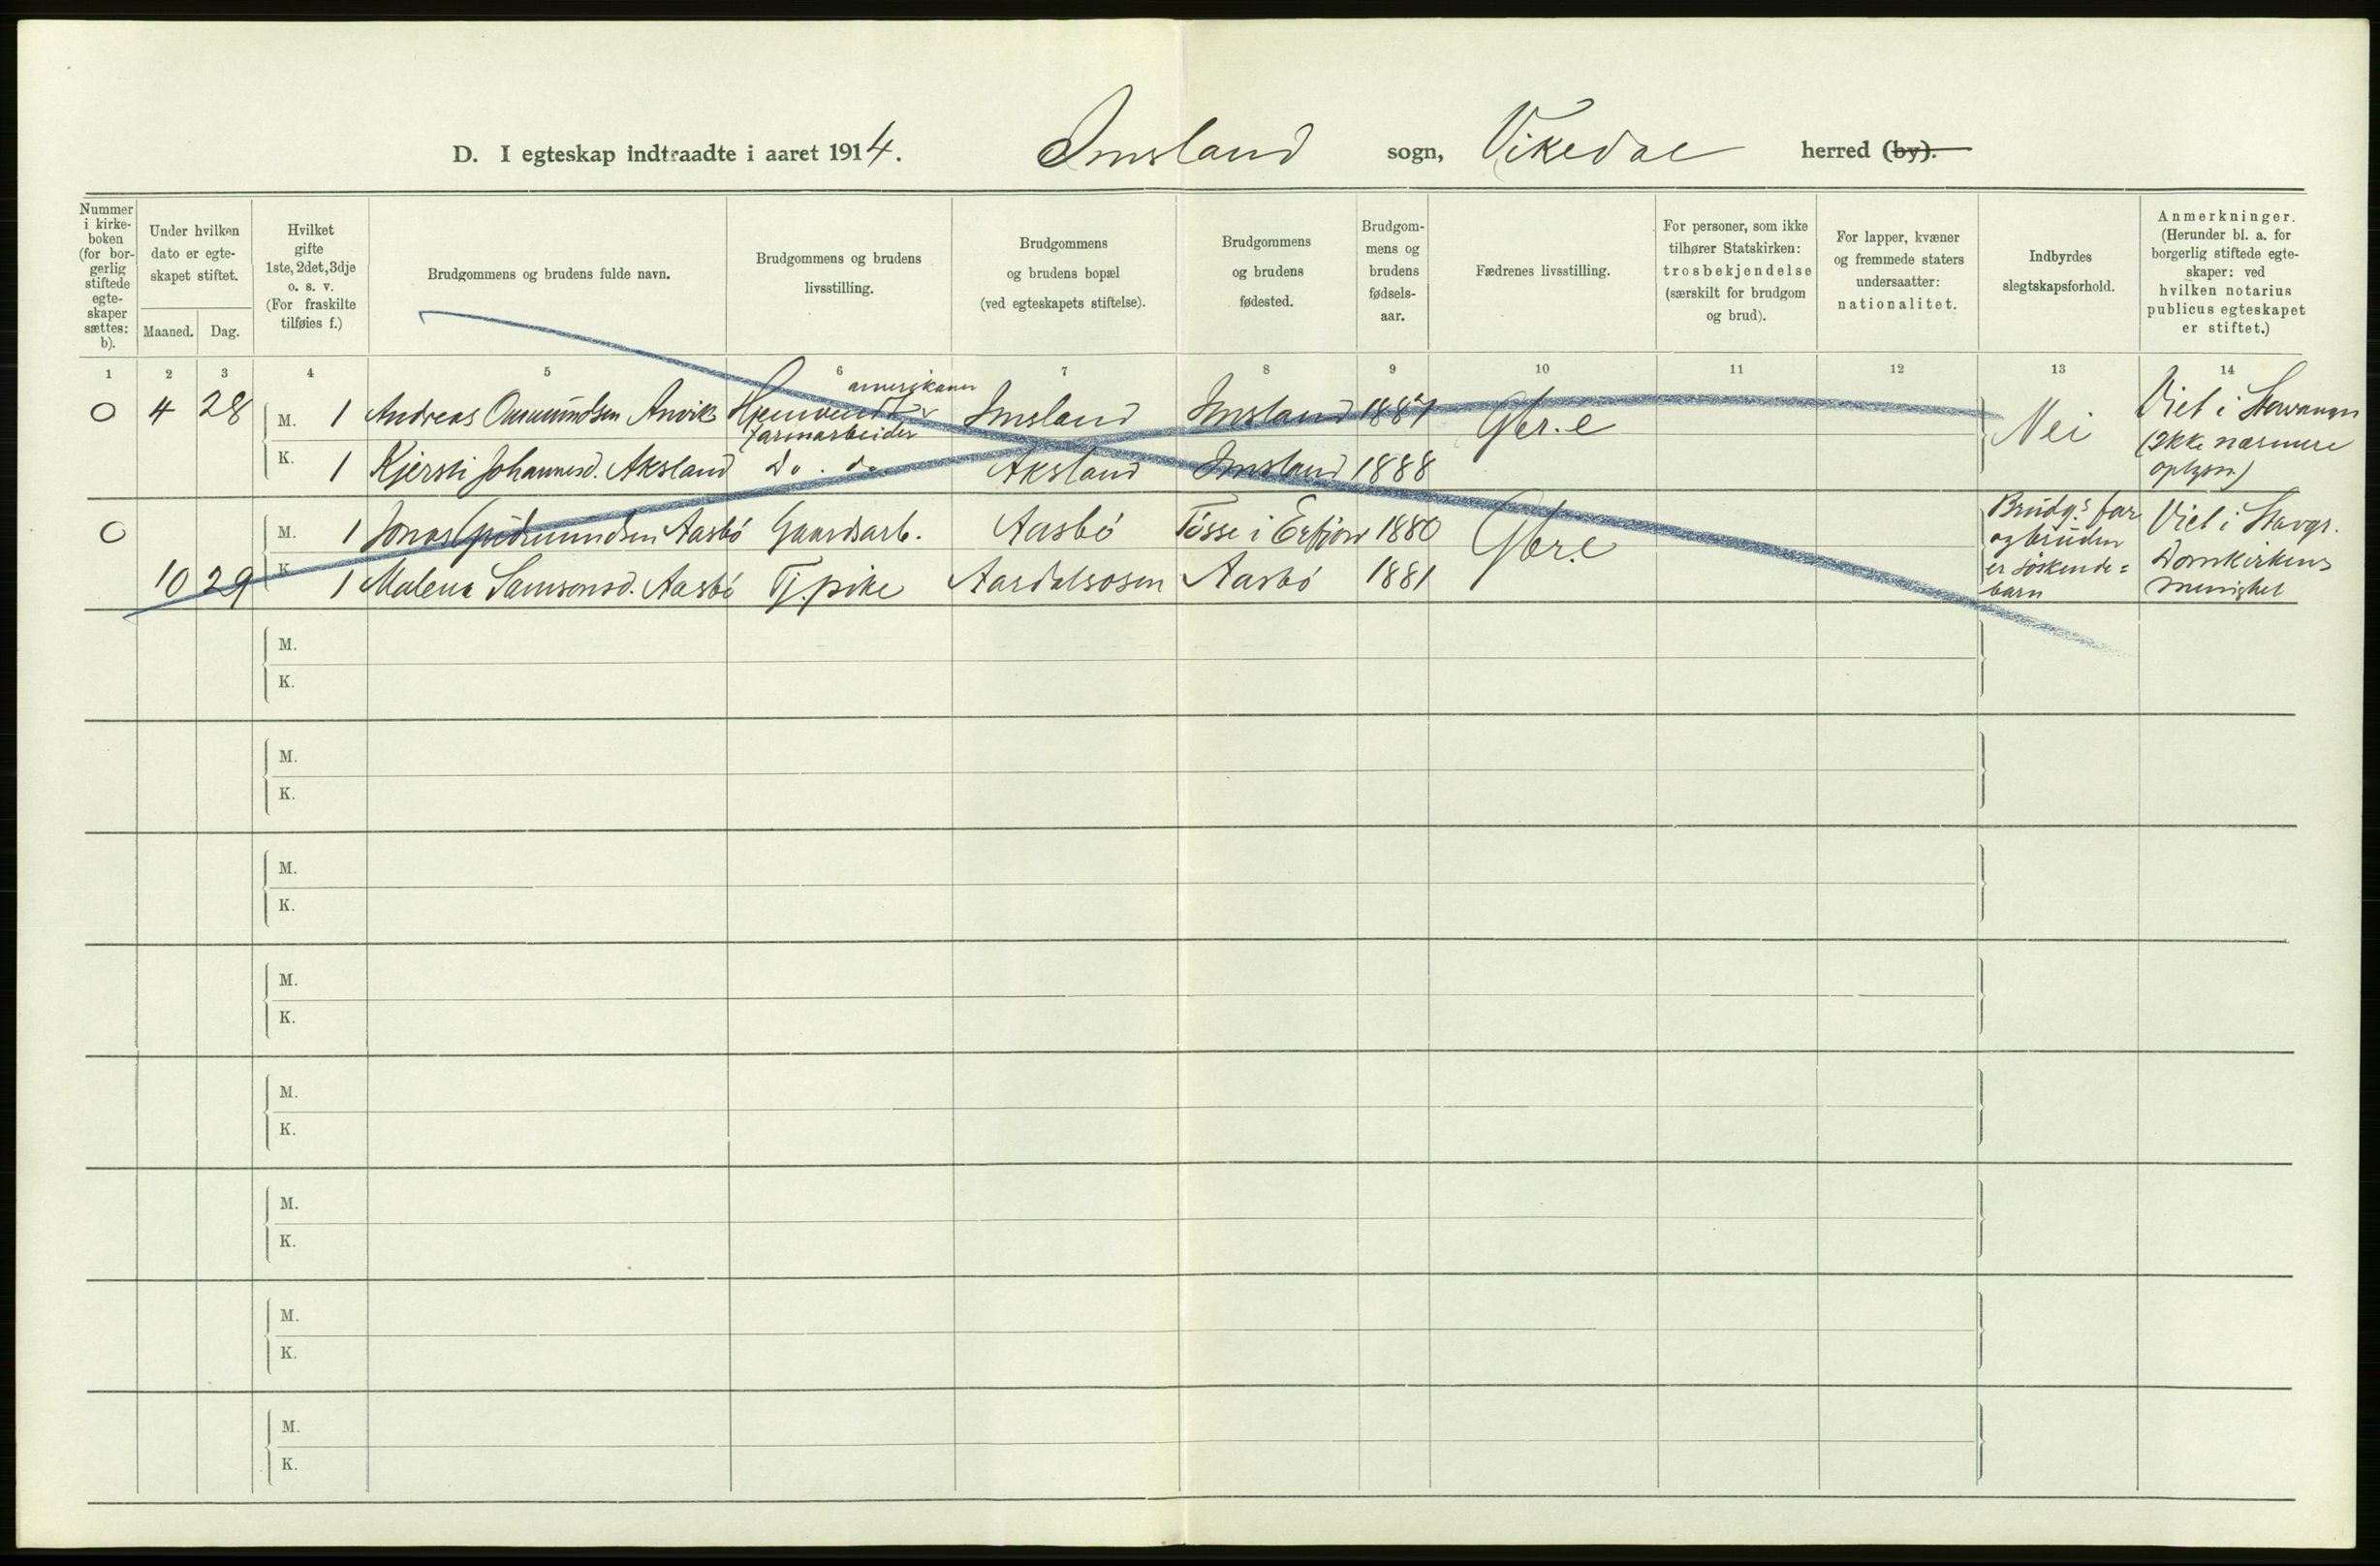 D. I egteskap indtraadte i aaret 1914. Imsland sogn, Vikedal herred (by).
Nummer i kirke- boken (for bor- gerlig stiftede egte- skaper sættes: b).
Under hvilken dato er egte- skapet stiftet.
Maaned. Dag.
Hvilket gifte 1ste, 2det, 3dje o. s. v. (For fraskilte tilføies f.)
Brudgommens og brudens fulde navn.
Brudgommens og brudens livsstilling.
Brudgommens og brudens bopæl (ved egteskapets stiftelse).
Brudgommens og brudens fødested.
Brudgom- mens og brudens fødsels- aar.
Fædrenes livsstilling.
For personer, som ikke tilhører Statskirken: trosbekjendelse (særskilt for brudgom og brud).
For lapper, kvæner og fremmede staters undersaatter: nationalitet.
Indbyrdes slegtskapsforhold.
Anmerkninger. (Herunder bl. a. for borgerlig stiftede egte- skaper: ved hvilken notarius publicus egteskapet er stiftet.)
1 2 3 4 5 6 7 8 9 10 11 12 13 14
0 4 28 M. 1 Andreas Anvik Hjemvendt amerikaner farmarbeider Imsland Imsland 1887 Gbr.e Nei Viet i Stavanger
K. 1 Kjersti Johannesd. Aksland Do. do. Aksland Imsland 1888 (Ikke nærmere oplysn.)
0 M. 1 Jonas Gudmundsen Aasbö Gaardsarb. Aasbö Tösse i Erfjord 1880 Gbr.e Brudg.s far og bruden Viet i Stavgr.
10 29 K. 1 Malena Samsonsd. Aasbö Tj.pike Aardalsosen Aasbö 1881 er söskende= barn Domkirkens menighet
M.
K.
M.
K.
M.
K.
M.
K.
M.
K.
M.
K.
M.
K.
M.
K.